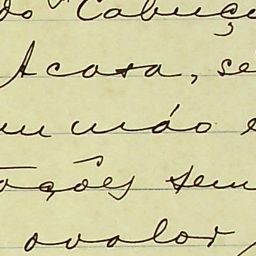 do Cabuçu
A casa, se
um máo e
ações sem
o valor